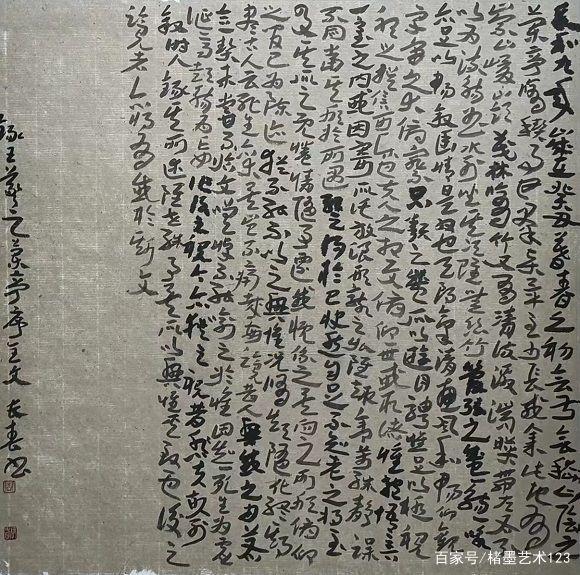 永和九年歲在癸丑暮春之初會于會稽山陰之
蘭亭脩禊事也群賢畢至少長咸集此地有
崇山峻領茂林脩竹又有清流激湍映帶左右引
以為流觴曲水列坐其次雖無絲竹管弦之盛一觴一詠
亦足以暢敘幽情是日也天朗氣清惠風和暢仰觀
宇宙之大俯察品類之盛所以遊目騁懷足以極視
聽之娛信可樂也夫人之相與俯仰一世或取諸懷抱悟言
一室之內或因寄所託放浪形骸之外雖趣舍萬殊靜躁
不同當其欣於所遇暫得於己快然自足不知老之將至
及其所之既惓情隨事遷感慨係之矣向之所欣俯仰
之間已為陳迹猶不能不以之興懷況脩短隨化終期於
盡古人云死生亦大矣豈不痛哉每覽昔人興感之由若合
一契未嘗不臨文嗟悼不能喻之於懷固知一死生為虛
誕齊彭殤為妄作後之視今亦猶今之視昔悲夫故列
敘時人錄其所述雖世殊事異所以興懷其致一也後之
覽者亦將有感於斯文
錄王羲之蘭亭序全文 長春書
百家号/楮墨艺术123